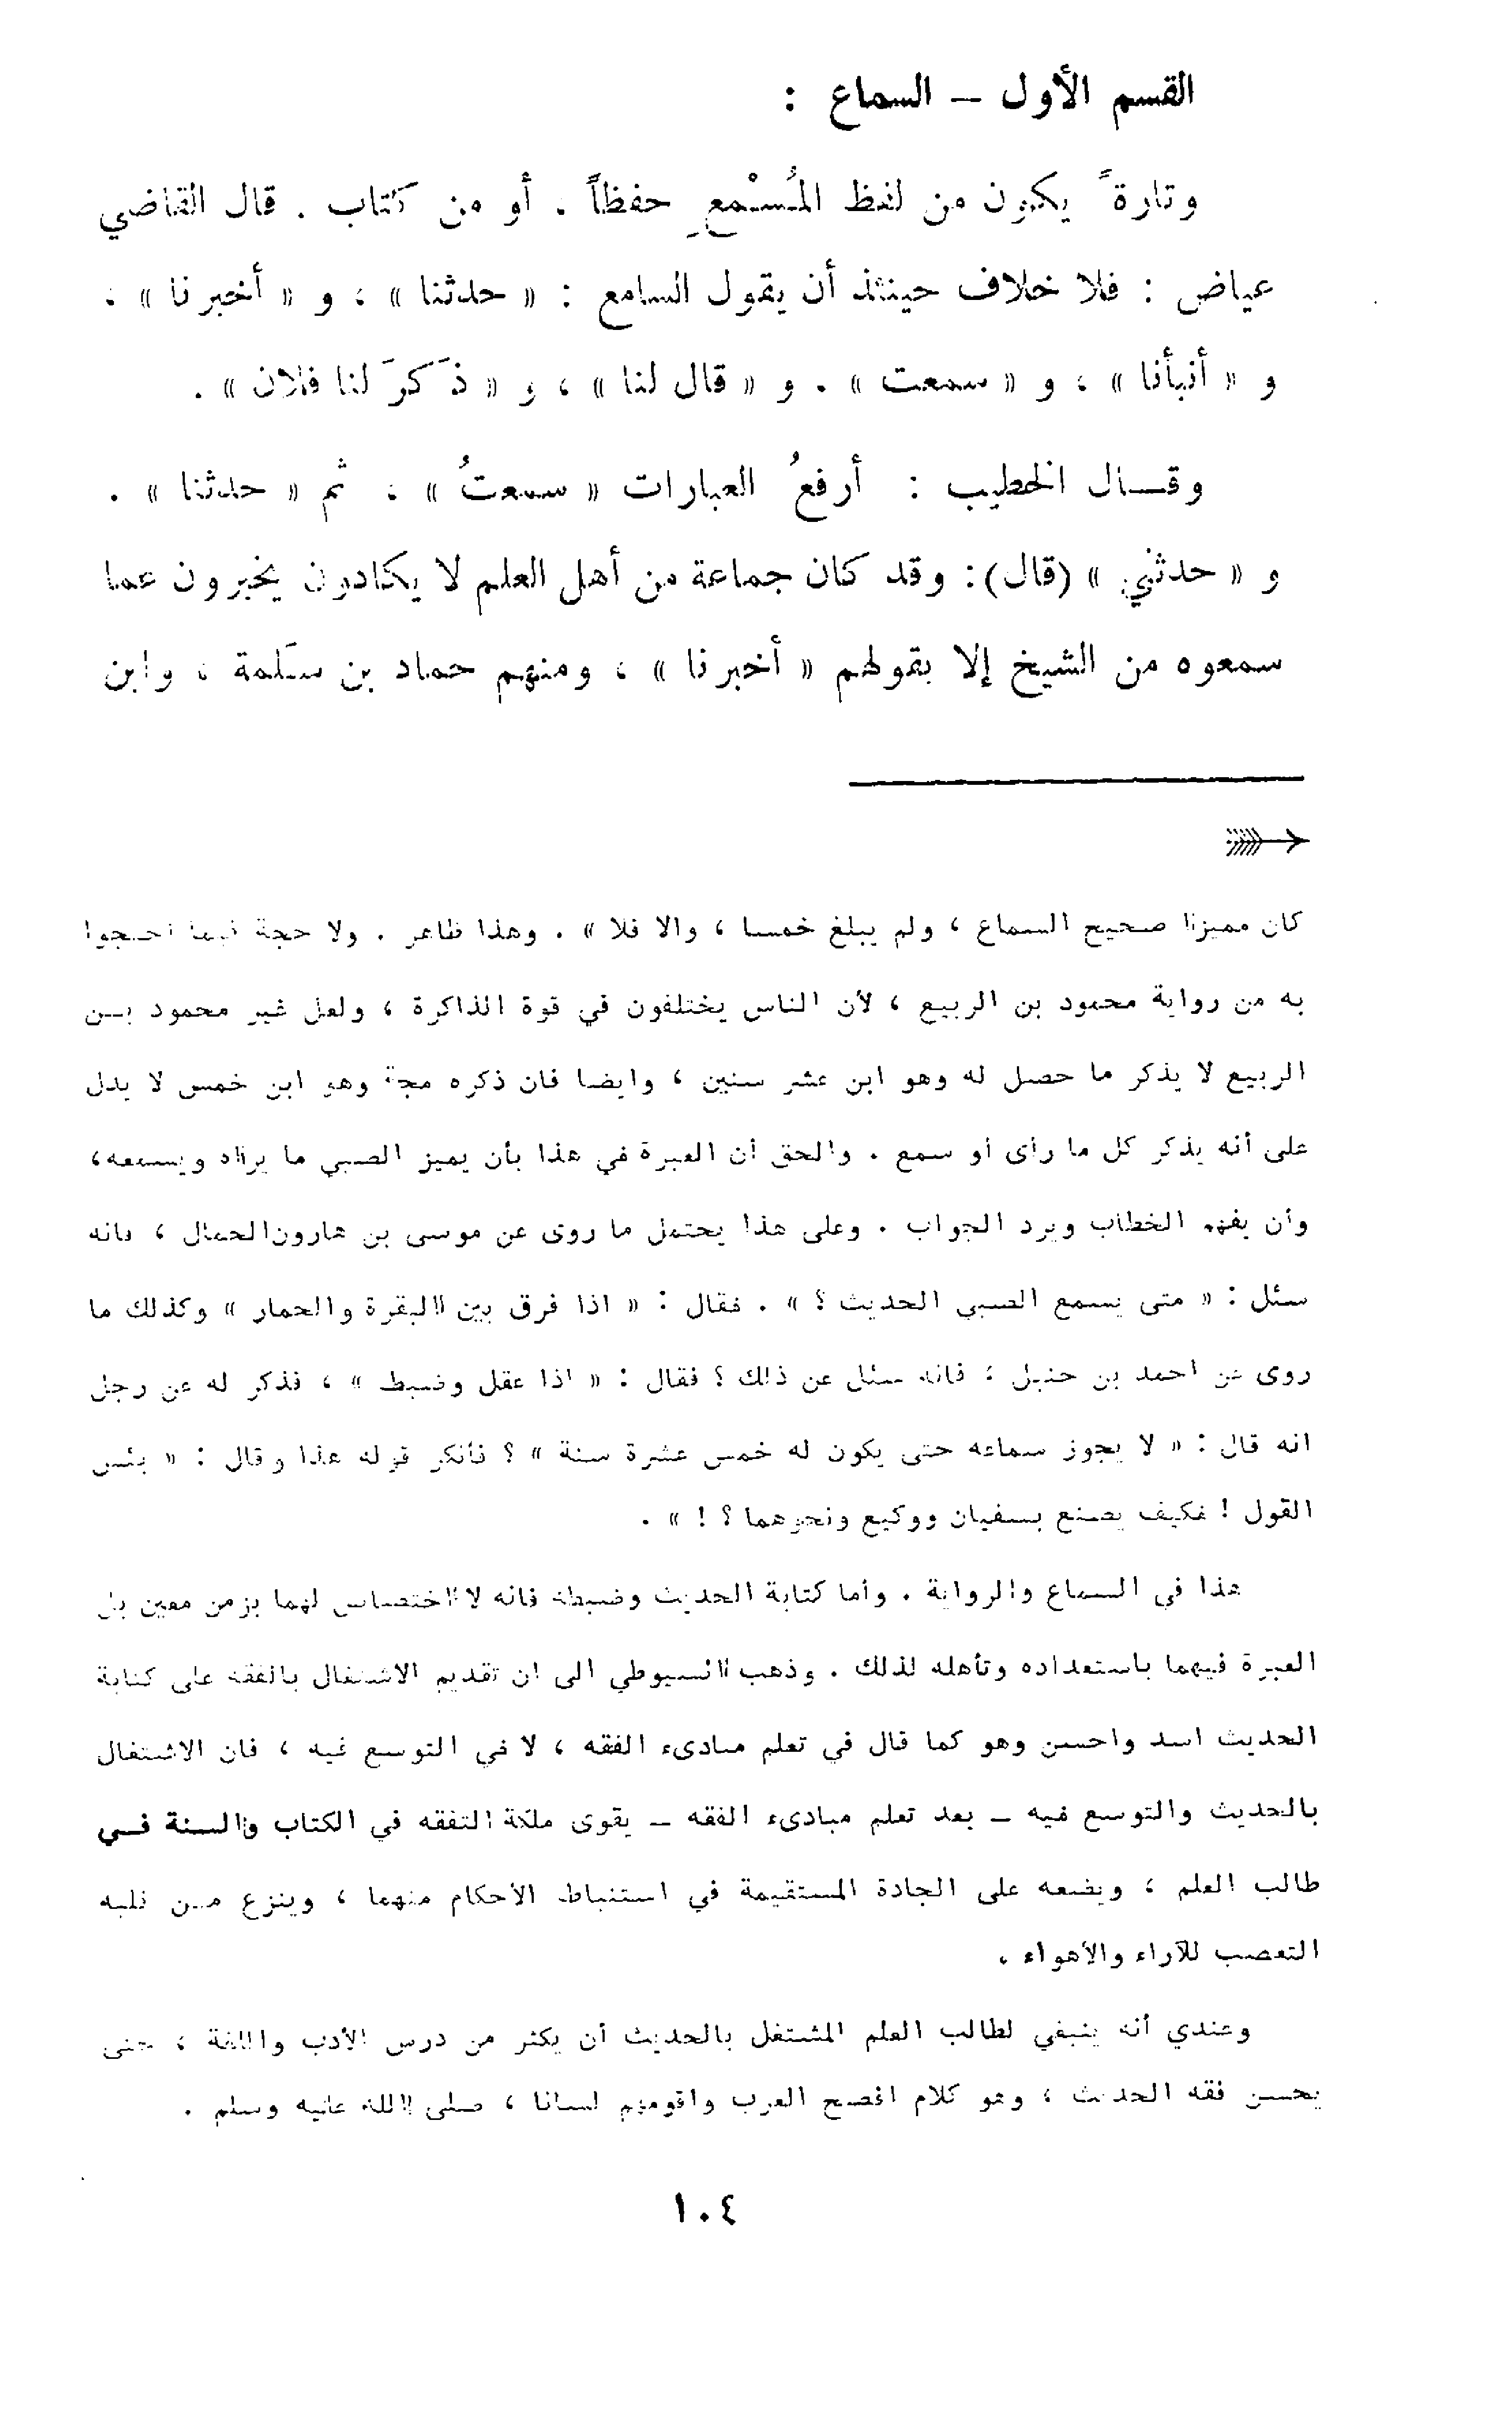 القسم الأول – السماع :
وتارةً يكون من لفظ المُسْمِع حفظاً ، أو من كتاب . قال القاضي
عياض : فلا خلاف حينئذ أن يقول السامع : « حدثنا » ، و « أخبرنا » ،
و « أنبأنا » ، و « سمعت » ، و « قال لنا » ، و « ذَكرَ لنا فلان » .
وقـــال الخطيب : أرفعُ العبارات « سمعتُ » ، ثم « حدثنا » .
و « حدثني » (قال) : وقد كان جماعة من أهل العلم لا يكادون يخبرون عما
سمعوه من الشيخ إلا بقولهم « أخبرنا » ، ومنهم حماد بن سَلمة ، وابن
كان مميزا صحيح السماع ، ولم يبلغ خمسا ، والا فلا » . وهذا ظاهر . ولا حجة فيما احتجوا
به من رواية محمود بن الربيع ، لأن الناس يختلفون في قوة الذاكرة ، ولعل غير محمود بـــن
الربيع لا يذكر ما حصل له وهو ابن عشر سنين ، وايضا فان ذكره مجة وهو ابن خمس لا يدل
على أنه يذكر كل ما رأى أو سمع . والحق أن العبرة في هذا بأن يميز الصبي ما يراه ويسمعه،
وأن يفهم الخطاب ويرد الجواب . وعلى هذا يحتمل ما روى عن موسى بن هارون الحمال ، فانه
سئل : « متى يسمع الصبي الحديث ؟ » . فقال : « اذا فرق بين البقرة والحمار » وكذلك ما
روى عن احمد بن حنبل ؛ فانه سئل عن ذلك ؟ فقال : « اذا عقل وضبط » ، فذكر له عن رجل
انه قال : « لا يجوز سماعه حتى يكون له خمس عشرة سنة » ؟ فأنكر قوله هذا وقال : « بئس
القول ! فكيف يصنع بسفيان ووكيع ونحوهما ؟ ! » .
هذا في السماع والرواية . وأما كتابة الحديث وضبطه فانه لا اختصاص لهما بزمن معين بل
العبرة فيهما باستعداده وتأهله لذلك . وذهب السيوطي الى ان تقديم الاشتغال بالفقه على كتابة
الحديث اسد واحسن وهو كما قال في تعلم مبادىء الفقه ، لا في التوسع فيه ، فان الاشتغال
بالحديث والتوسع فيه – بعد تعلم مبادىء الفقه – يقوى ملكة التفقه في الكتاب والسنة فـــي
طالب العلم ، ويضعه على الجادة المستقيمة في استنباط الأحكام منهما ، وينزع مـــن قلبه
التعصب للآراء والأهواء .
وعندي أنه ينبغي لطالب العلم المشتغل بالحديث أن يكثر من درس الأدب واللغة ، حتى
يحسن فقه الحديث ، وهو كلام افصح العرب واقومهم لسانا ، صلى الله عليه وسلم .
١٠٤